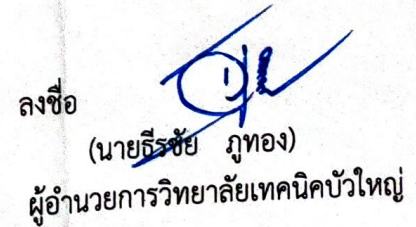 ลงชื่อ
(นายธีรชัย ภูทอง)
ผู้อำนวยการวิทยาลัยเทคนิคบัวใหญ่